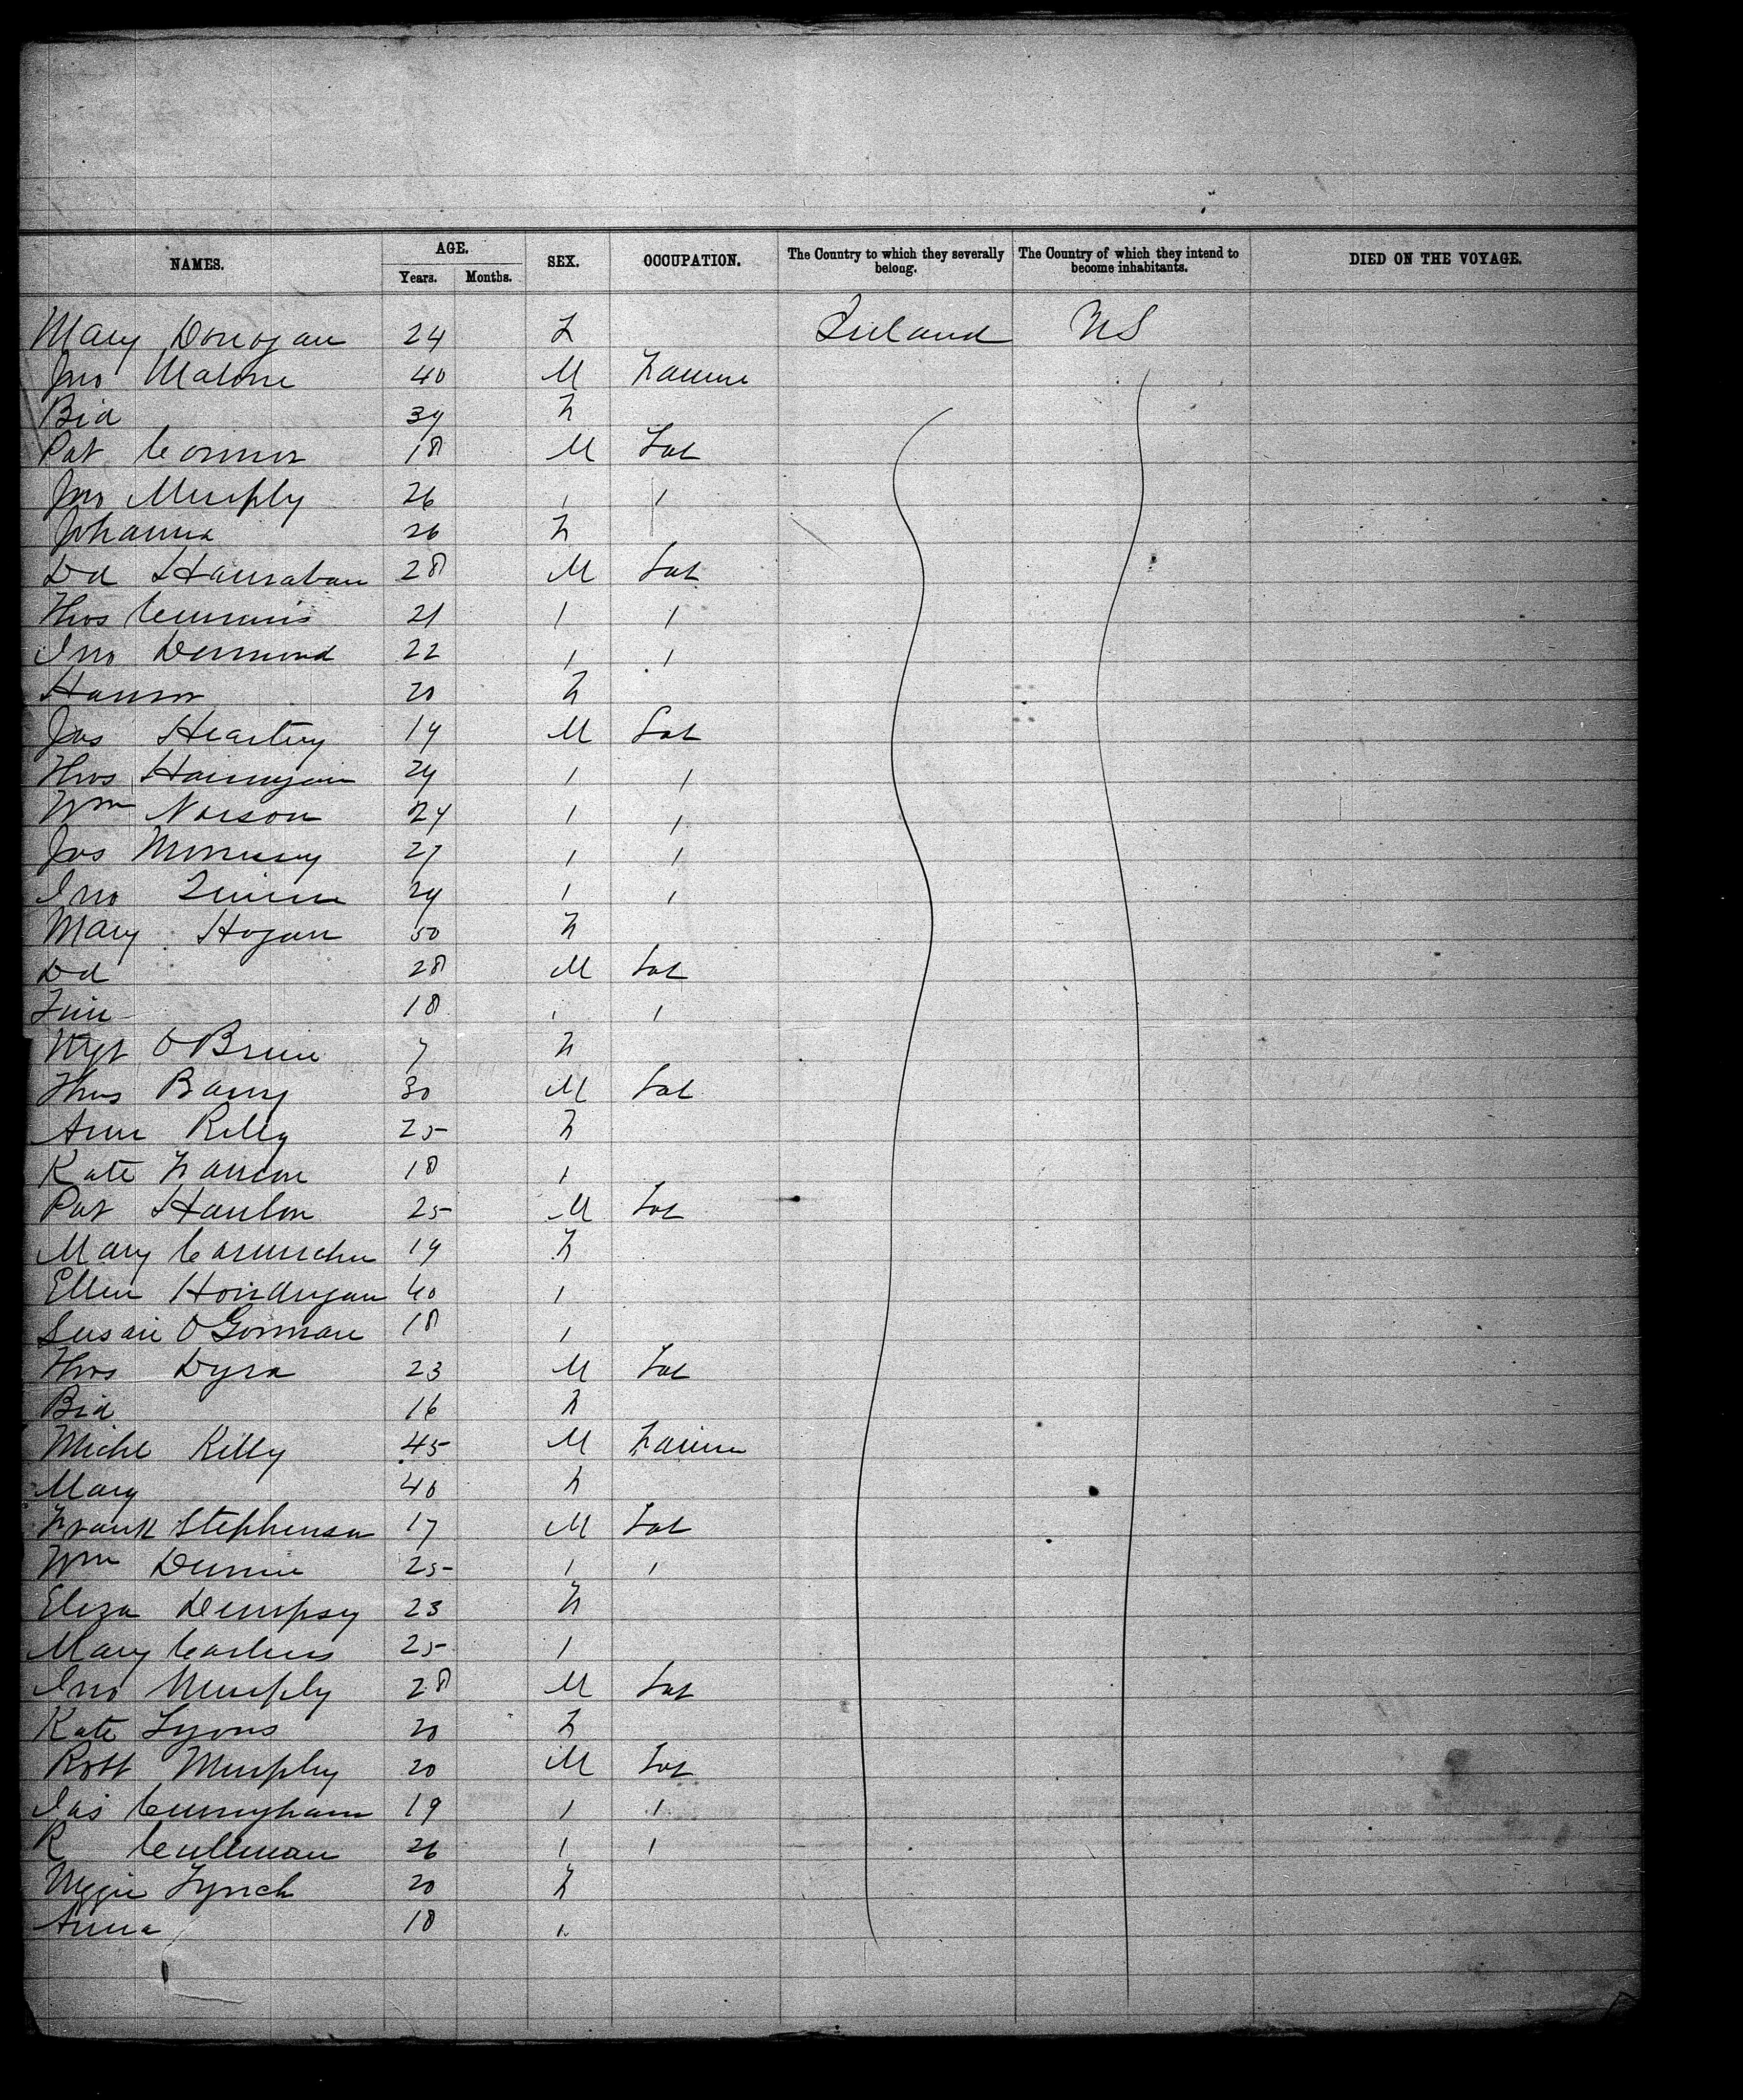 NAMES. AGE. Years. Months. SEX. OCCUPATION. The Country to which they severally belong. The Country of which they intend to become inhabitants. DIED ON THE VOYAGE.
Mary Donogan 24 F Ireland US
Jno Malone 40 M Farmer
Bid 34 F
Pat Connor 18 M Lab
Jno Murphy 26 " "
Johanna 26 F
Dd Hanrahan 28 M Lab
Thos Cummins 21 " "
Jno Desmond 22 " "
Hanor 20 F
Jas Heartny 19 M Lab
Thos Hannigan 24 " "
Wm Narson 24 " "
Jas Morrissy 27 " "
Jno Quinn 24 " "
Mary Hogan 50 F
Dd 28 M Lab
Tim 18 " "
Mgt O'Brien 7 F
Thos Barry 30 M Lab
Ann Kelly 25 F
Kate Fannon 18 "
Pat Hanlon 25 M Lab
Mary 19 F
Ellen 40 "
Susan O'Gorman 18 "
Thos Dyra 23 M Lab
Bid 16 F
Michl Kelly 45 M Farmer
Mary 40 F
Frank Stephenson 17 M Lab
Wm Dunne 25 " "
Eliza Dempsy 23 F
Mary 25 "
Jno Murphy 28 M Lab
Kate Lyons 20 F
Robt Murphy 20 M Lab
Jas Cunnyham 19 " "
R Cullinan 26 " "
Maggie Lynch 20 F
Anna 18 "